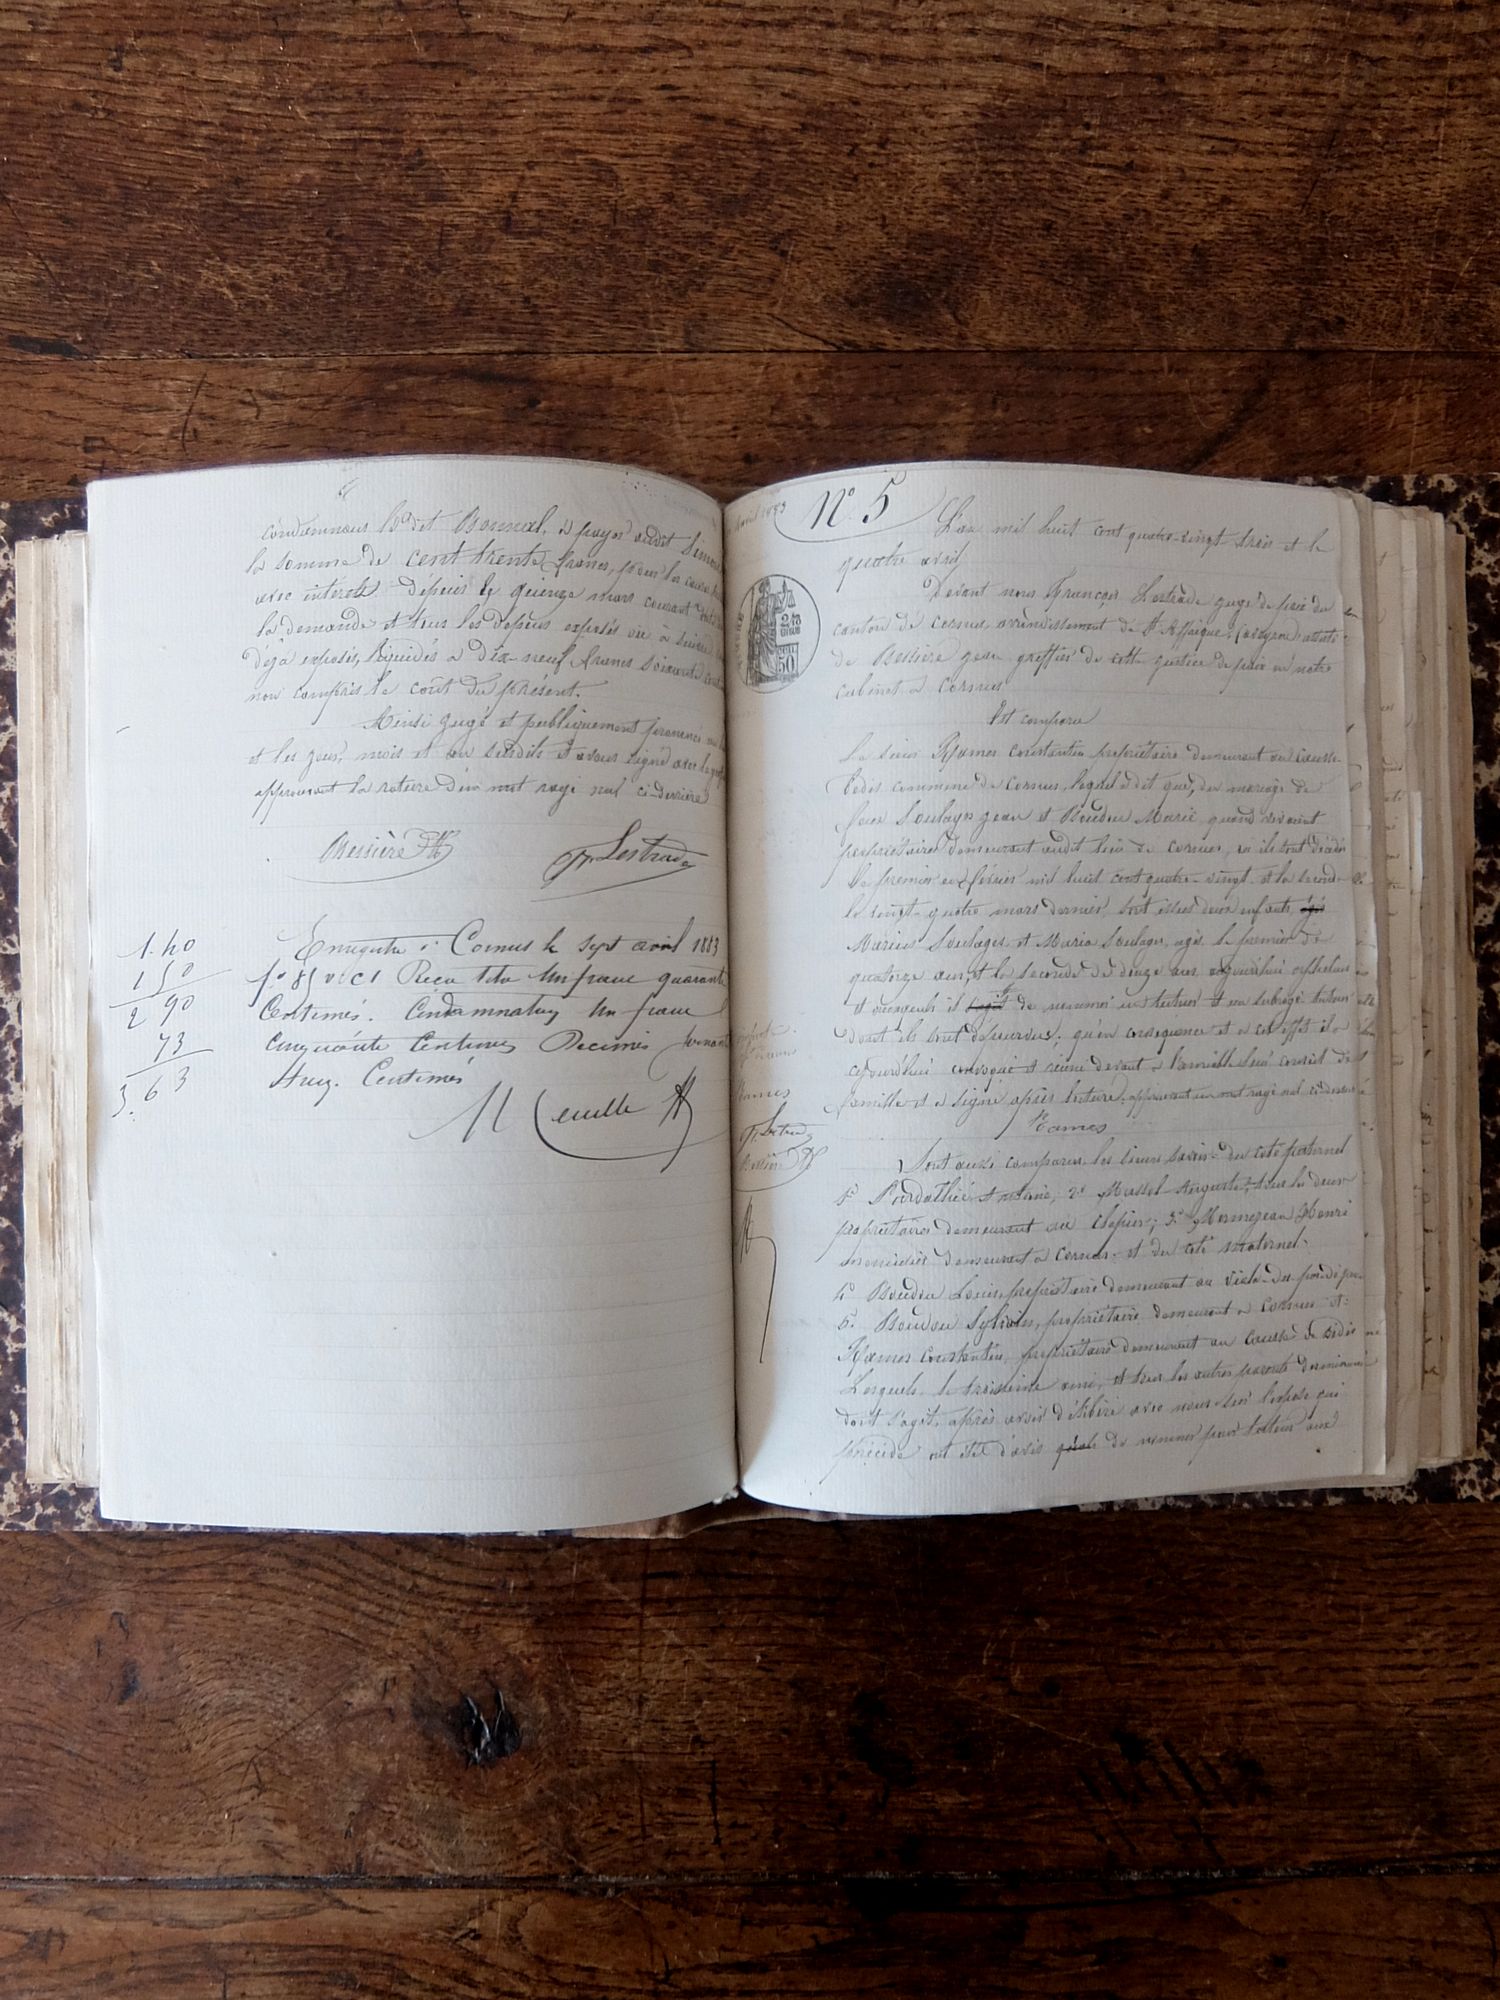 condamnons led dit Bonnal, à payer audit Simon
la somme de cent trente francs, pour les causes
avec intérêts depuis le quinze mars courant
la demande et tous les dépens exposés ou à suivre
déjà exposés, liquidés à dix-neuf francs soixante
non compris le coût du présent.
Ainsi jugé et publiquement prononcé
et les jour, mois et an susdits et avons signé avec le
approuvant la rature d'un mot rayé nul ci-derrière
Bessière
Lestrade
1.40
1 50
2 90
73
3. 63
Enregistré à Cornus le sept avril 1883
f° 85 v° c1 Reçu un franc quarante
Centimes. un franc
cinquante Centimes Décimes soixante
treize Centimes
avril 1883
N° 5
L'an mil huit cent quatre-vingt trois et le
quatre avril,
Devant nous François Lestrade juge de paix du
canton de Cornus arrondissement de St Affrique, (Aveyron) assisté
de Bessière Jean greffier de cette justice de paix en notre
cabinet à Cornus
Est comparu
Le sieur Rames Constantin propriétaire demeurant au Causse
Bedis commune de Cornus, lequel a dit que, du mariage de
feus Soulages Jean et Boudou Marie, quand vivaient
propriétaires demeurant audit lieu de Cornus, où ils sont décédés
le premier en février mil huit cent quatre-vingt et la seconde
le vingt-quatre mars dernier, sont issus deux enfants âgés
Marius Soulages et Maria Soulages, agés le premier de
quatorze ans, et la seconde de douze ans aujourd'hui orphelins
et mineurs il de nommer un tuteur et un subrogé tuteur
dont ils sont dépourvus; qu'en conséquence et à cet effet il a
cejourd'hui convoqué et réuni devant à l'amiable leur conseil de
famille et a signé après lecture, approuvant un mot rayé nul ci-dessus
Rames
Sont aussi comparus les sieurs savoir: du coté paternel
1° Pourdathié Antoine, 2° Massol Auguste, tous les deux
propriétaires demeurant au Clapier; 3° Mermejean Henri
menuisier demeurant à Cornus et du coté maternel.
4° Boudou Louis, propriétaire demeurant au Viala-du-pas-de-jaux
5° Boudou Sylvain, propriétaire demeurant à Cornus et
Rames Constantin, propriétaire demeurant au Causse de Bedis
Lesquels le troisième ami, et tous les autres parents des mineurs
dont s'agit, après avoir délibéré avec nous sur l'exposé qui
précède ont été d'avis qu'ils de nommer pour tuteur aux
Rames
Lestrade
Bessière